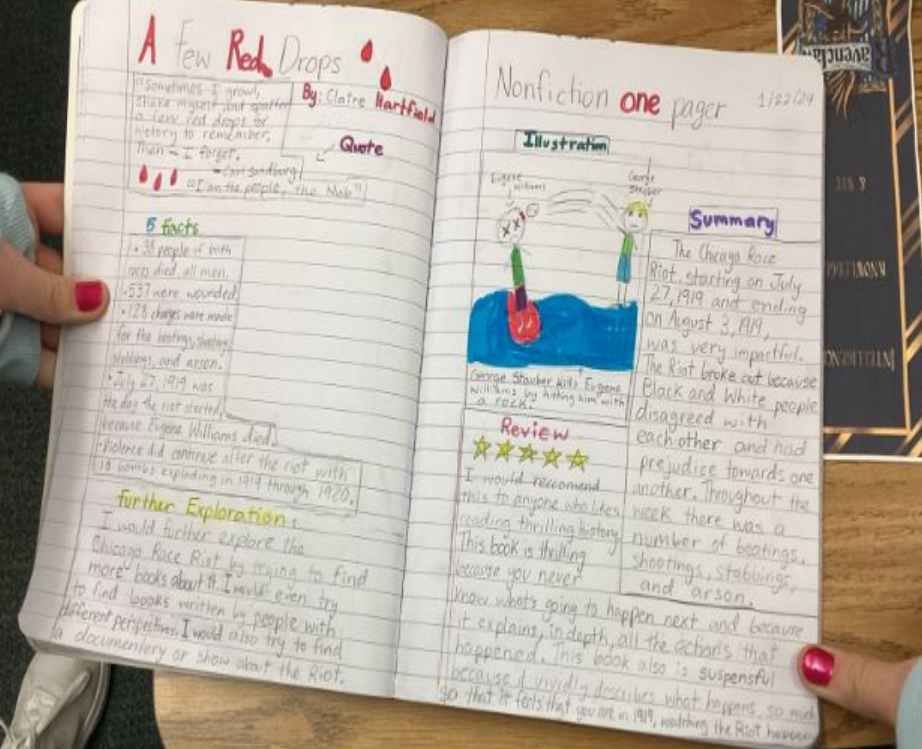 A Few Red Drops
By: Claire Hartfield
"Sometimes I growl,
shake myself and spatter
a few red drops for
history to remember.
Then - I forget.
-Carl Sandburg
"I am the people, the Mob"
Quote
5 facts
• 38 people of both
races died, all men.
•537 were wounded
•128 charges were made
for the beatings, shootings,
stabbings, and arson.
• July 27, 1919 was
the day the riot started,
because Eugene Williams died.
•Violence did continue after the riot with
18 bombs exploding in 1919 through 1920.
further Exploration:
I would further explore the
Chicago Race Riot by trying to find
more books about it. I would even try
to find books written by people with
different perspectives. I would also try to find
a documentery or show about the Riot.
Nonfiction one pager
1/22/24
Illustration
Eugene
Williams
George
Stauber
George Stauber kills Eugene
Williams by hitting him with
a rock.
Summary
The Chicago Race
Riot, starting on July
27, 1919 and ending
on August 3, 1919,
was very impactful.
The Riot broke out because
Black and White people
disagreed with
each other and had
prejudice towards one
another. Throughout the
week there was a
number of beatings,
shootings, stabbings,
and arson.
Review
I would reccomend
this to anyone who likes
reading thrilling history.
This book is thrilling
because you never
know what's going to happen next and because
it explains, in depth, all the actions that
happened. This book also is suspensful
because it vividly describes what happens, so much
so that it feels that you are in 1919, watching the Riot happen